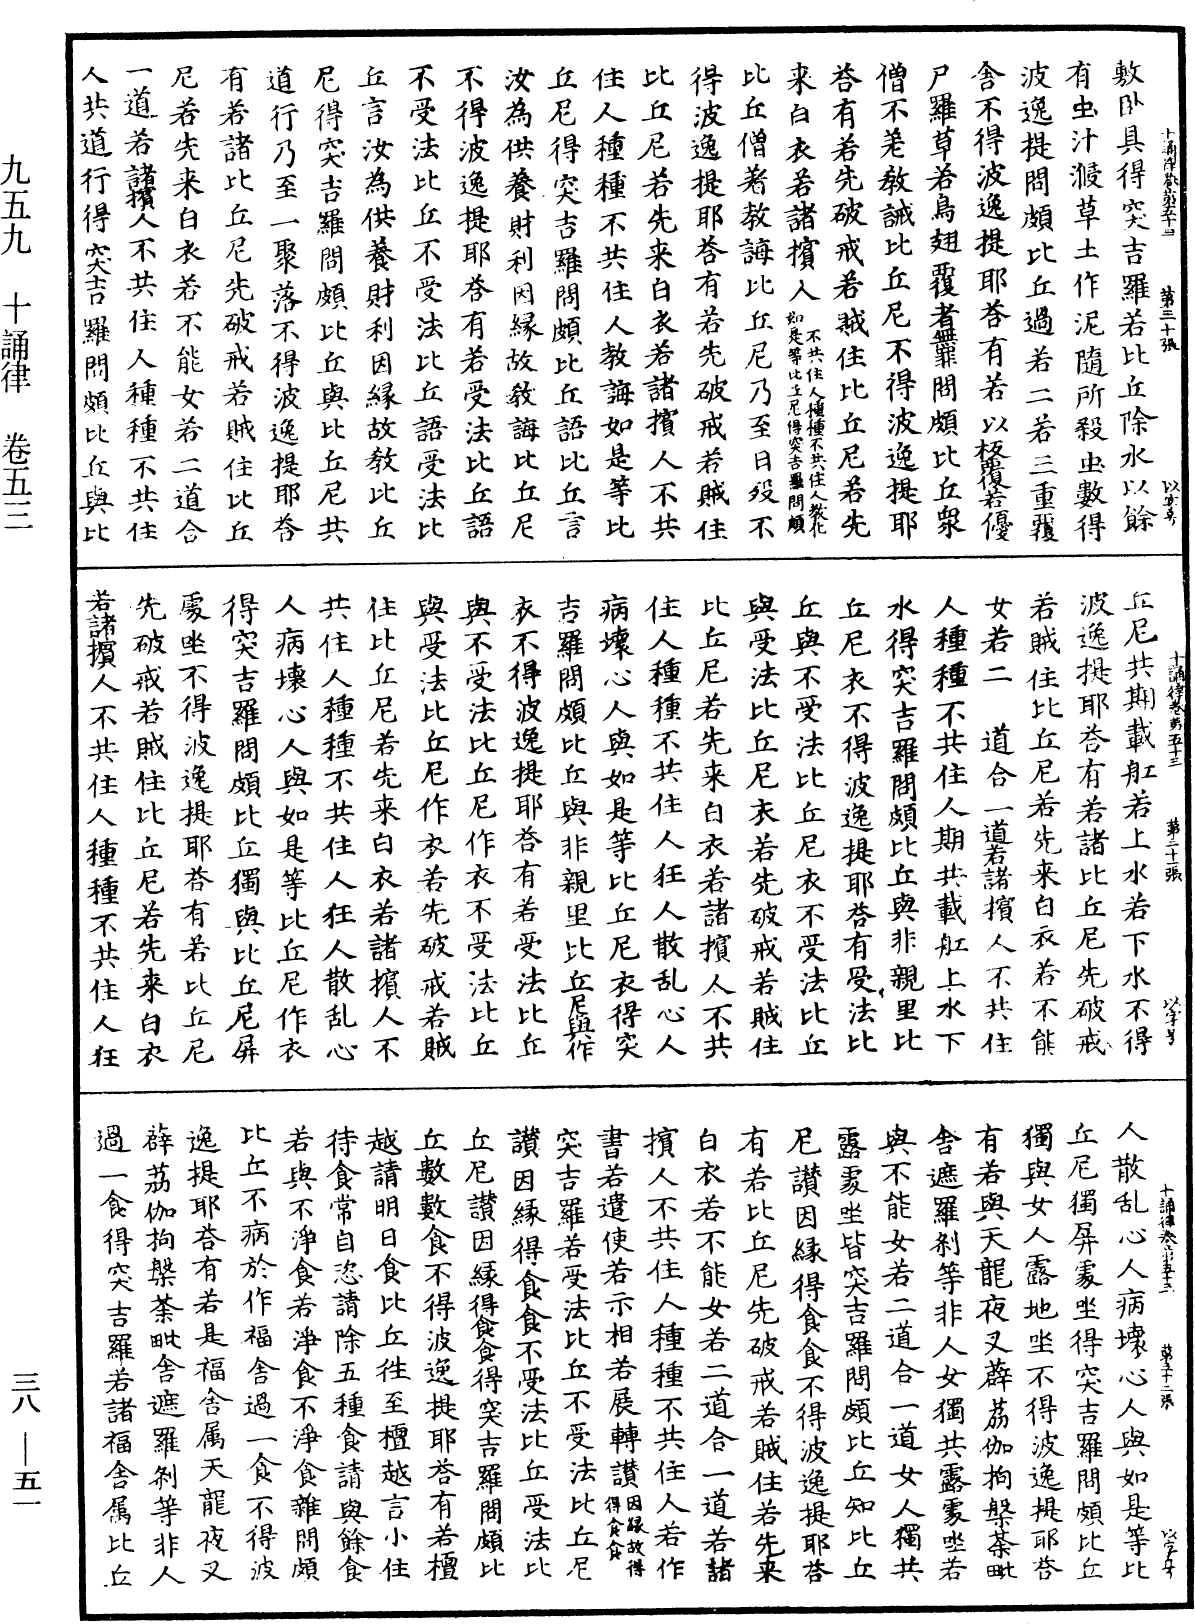 敷卧具得突吉羅若比丘除水以餘
有虫汁漑草土作泥隨所殺虫數得
波逸提問頗比丘過若二若三重覆
舍不得波逸提耶荅有若以板覆若優
尸羅草若鳥翅覆者無罪問頗比丘衆
僧不差教誡比丘尼不得波逸提耶
荅有若先破戒若賊住比丘尼若先
来白衣若諸擯人不共住人種種不共住人教化如是等比丘尼得突吉羅問頗
比丘僧差教誨比丘尼乃至日歿不
得波逸提耶荅有若先破戒若賊住
比丘尼若先来白衣若諸擯人不共
住人種種不共住人教誨如是等比
丘尼得突吉羅問頗比丘語比丘言
汝為供養財利因緣故教誨比丘尼
不得波逸提耶荅有若受法比丘語
不受法比丘不受法比丘語受法比
丘言汝為供養財利因緣故教比丘
尼得突吉羅問頗比丘與比丘尼共
道行乃至一聚落不得波逸提耶荅
有若諸比丘尼先破戒若賊住比丘
尼若先来白衣若不能女若二道合
一道若諸擯人不共住人種種不共住
人共道行得突吉羅問頗比丘與比
丘尼共期載舡若上水若下水不得
波逸提耶荅有若諸比丘尼先破戒
若賊住比丘尼若先来白衣若不能
女若二 道合一道若諸擯人不共住
人種種不共住人期共載舡上水下
水得突吉羅問頗比丘與非親里比
丘尼衣不得波逸提耶荅有受法比
丘與不受法比丘尼衣不受法比丘
與受法比丘尼衣若先破戒若賊住
比丘尼若先来白衣若諸擯人不共
住人種種不共住人狂人散乱心人
病壞心人與如是等比丘尼衣得突
吉羅問頗比丘與非親里比丘尼與作
衣不得波逸提耶荅有若受法比丘
與不受法比丘尼作衣不受法比丘
與受法比丘尼作衣若先破戒若賊
住比丘尼若先来白衣若諸擯人不
共住人種種不共住人狂人散乱心
人病壞心人與如是等比丘尼作衣
得突吉羅問頗比丘獨與比丘尼屏
處坐不得波逸提耶荅有若比丘尼
先破戒若賊住比丘尼若先来白衣
若諸擯人不共住人種種不共住人狂
人散乱心人病壞心人與如是等比
丘尼獨屏處坐得突吉羅問頗比丘
獨與女人露地坐不得波逸提耶荅
有若與天龍夜叉薜荔伽拘槃荼毗
舍遮羅剎等非人女獨共露處坐若
與不能女若二道合一道女人獨共
露處坐皆突吉羅問頗比丘知比丘
尼讃因緣得食食不得波逸提耶荅
有若比丘尼先破戒若賊住若先来
白衣若不能女若二道合一道若諸
擯人不共住人種種不共住人若作
書若遣使若示相若展轉讃因緣故得得食食
突吉羅若受法比丘不受法比丘尼
讃因緣得食食不受法比丘受法比
丘尼讃因緣得食食得突吉羅問頗比
丘數數食不得波逸提耶荅有若檀
越請明日食比丘徃至檀越言小住
待食常自恣請除五種食請與餘食
若與不淨食若淨食不淨食雜問頗
比丘不病於作福舍過一食不得波
逸提耶荅有若是福舍属天龍夜叉
薜荔伽拘槃荼毗舍遮羅剎等非人
過一食得突吉羅若諸福舍属比丘
十誦律卷第五十三 第三十張
十誦律卷第五十三 第三十一張
十誦律卷第五十三 第三十二張
九五九 十誦律 卷五三
三八—五一